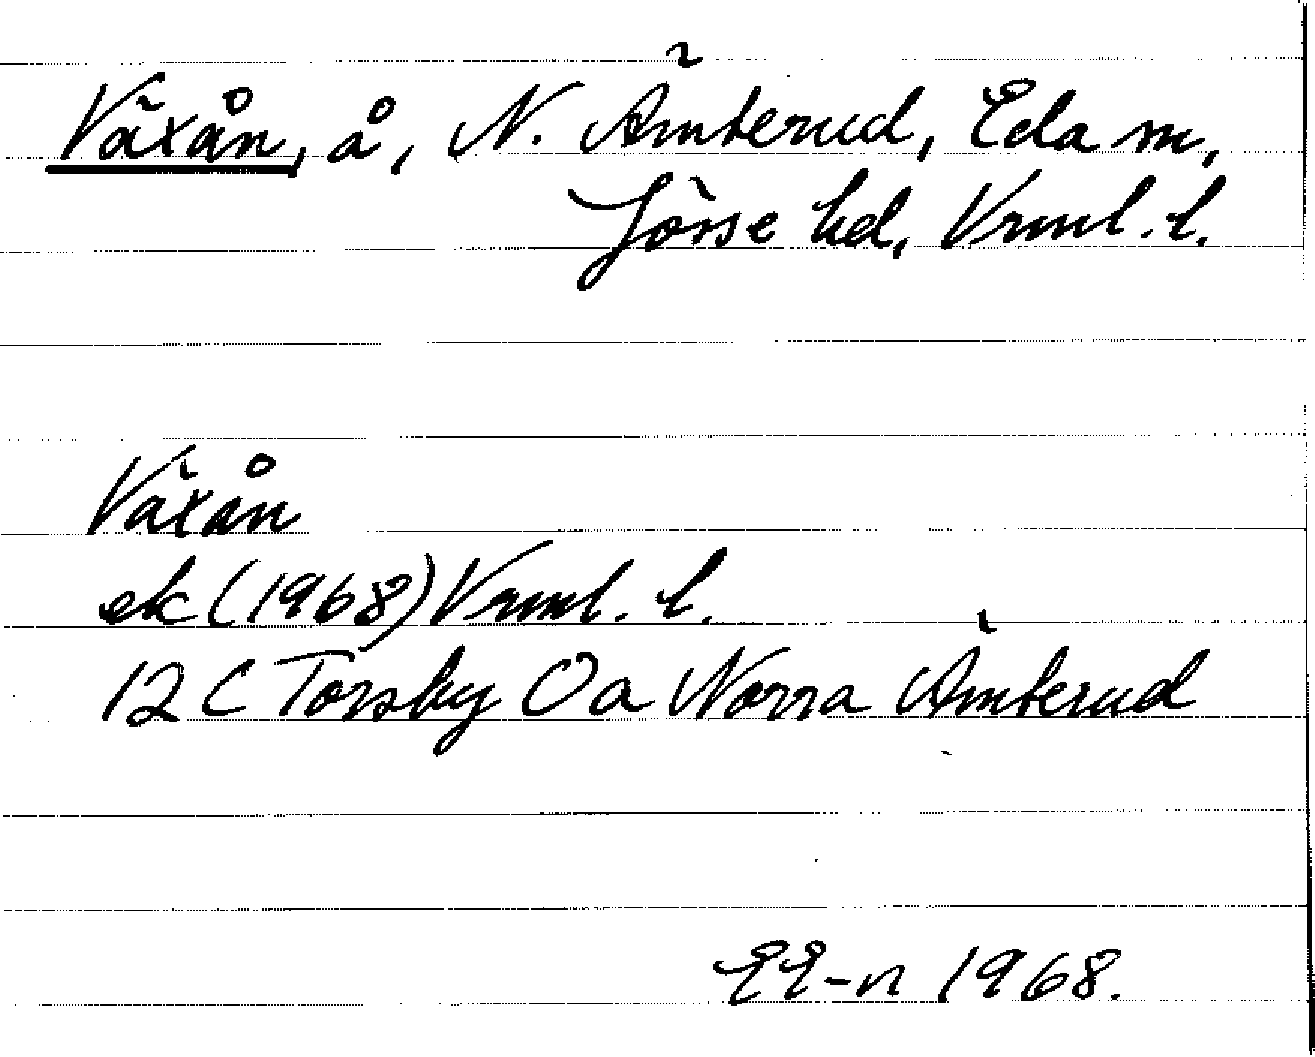 Växån, å, N. Ämterud, Eda sn,
Jösse hd, Vrml. l.
Växån
ek (1968) Vrml. l.
12 C Torsby 0a Norra Ämterud
EE-n 1968.